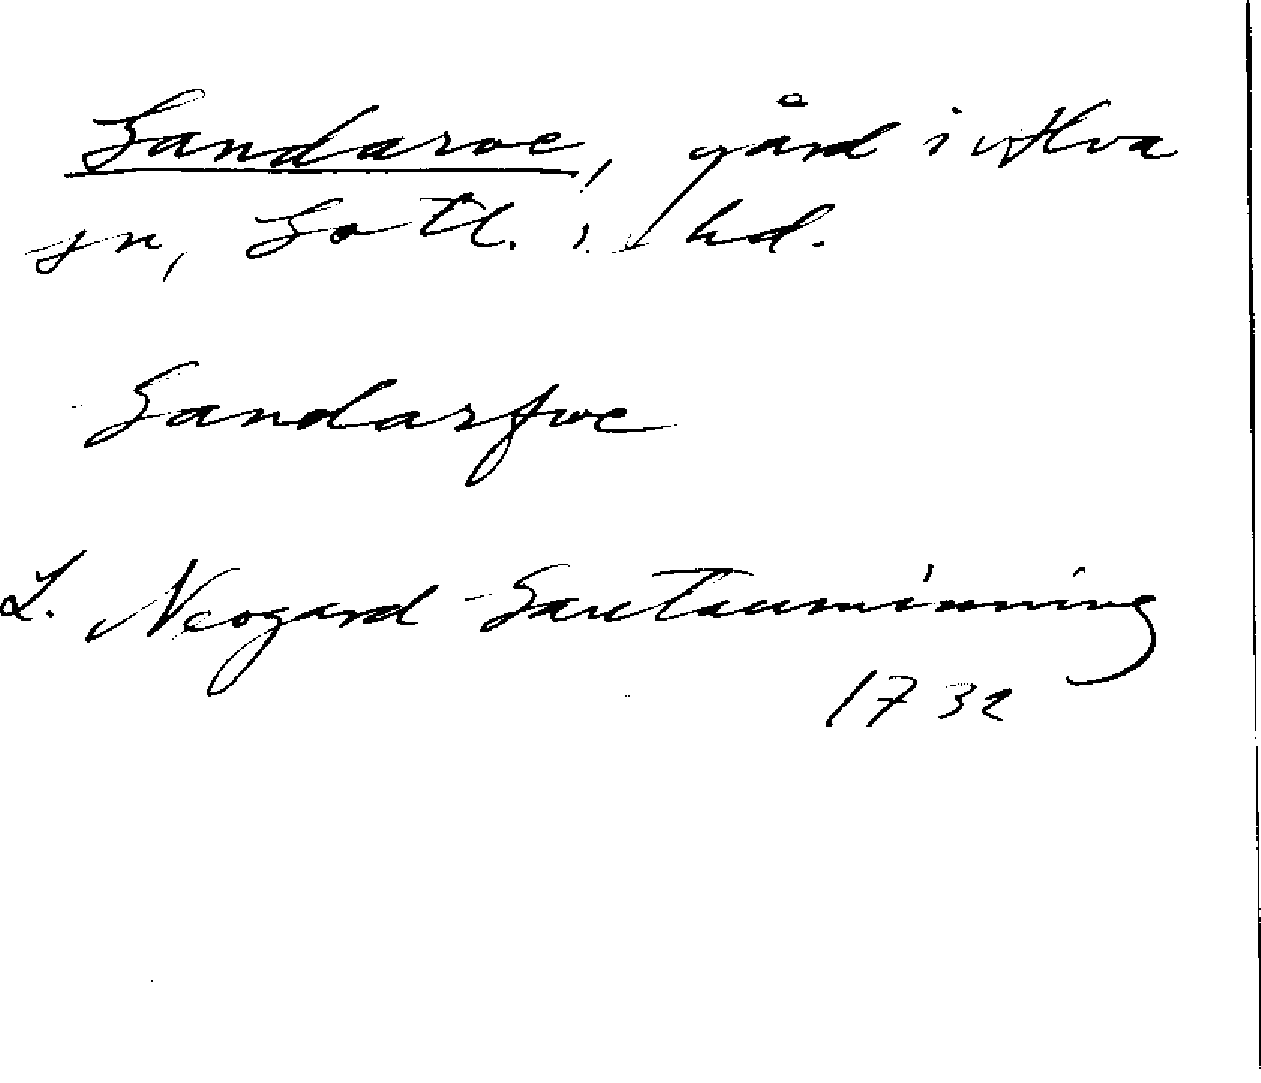 Gandarve, gård i Alva
sn, Gotl. s. hd.
Gandarfve
L. Neogard - Gautauminning
1732